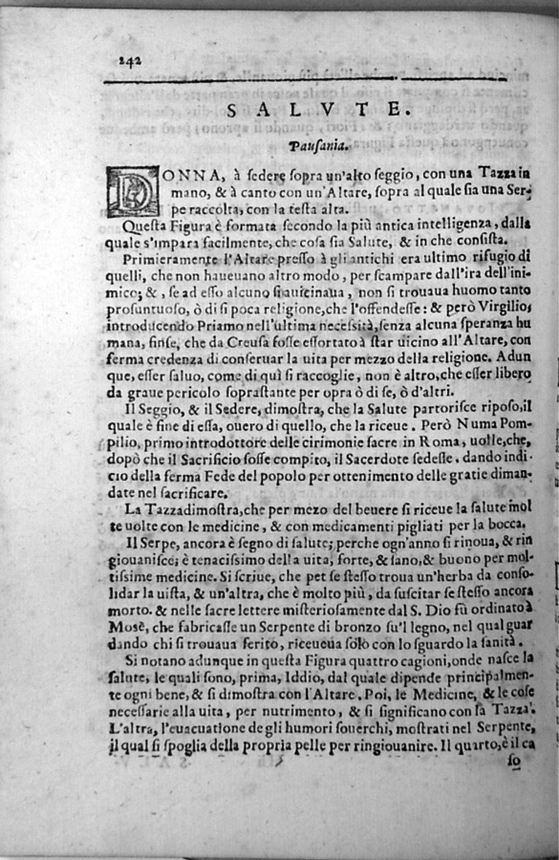 242
SALVTE.
Pausania.
DONNA, à sedere sopra un'alto seggio, con una Tazza in
mano, & à canto con un'Altare, sopra al quale sia una Ser-
pe raccolta, con la testa alta.
Questa Figura è formata secondo la più antica intelligenza, dalla
quale s'impara facilmente, che cosa sia Salute, & in che consista.
Primieramente l'Altare presso à gli antichi era ultimo rifugio di
quelli, che non haueuano altro modo, per scampare dall'ira dell'ini-
mico; &, se ad esso alcuno si auicinaua, non si trouaua huomo tanto
prosuntuoso, ò di si poca religione, che l'offendesse: & però Virgilio,
introducendo Priamo nell'ultima necessità, senza alcuna speranza hu
mana, finse, che da Creusa fosse essortato à star uicino all'Altare, con
ferma credenza di conseruar la uita per mezzo della religione. Adun
que, esser saluo, come di quì si raccoglie, non è altro, che esser libero
da graue pericolo soprastante per opra ò di se, ò d'altri.
Il Seggio, & il Sedere, dimostra, che la Salute partorisce riposo, il
quale è fine di essa, ouero di quello, che la riceue. Però Numa Pom-
pilio, primo introdottore delle cirimonie sacre in Roma, uolle, che,
dopò che il Sacrificio fosse compito, il Sacerdote sedesse. dando indi-
cio della ferma Fede del popolo per ottenimento delle gratie diman-
date nel sacrificare.
La Tazza dimostra, che per mezo del beuere si riceue la salute mol
te uolte con le medicine, & con medicamenti pigliati per la bocca.
Il Serpe, ancora è segno di salute; perche ogn'anno si rinoua, & rin
giouanisce; è tenacissimo della uita, forte, & sano, & buono per mol-
tissime medicine. Si scriue, che pet se stesso troua un'herba da conso-
lidar la uista, & un'altra, che è molto più, da suscitar se stesso ancora
morto. & nelle sacre lettere misteriosamente dal S. Dio fù ordinato à
Mosè, che fabricasse un Serpente di bronzo su'l legno, nel qual guar
dando chi si trouaua ferito, riceueua solo con lo sguardo la sanità.
Si notano adunque in questa Figura quattro cagioni, onde nasce la
salute, le quali sono, prima, Iddio, dal quale dipende principalmen-
te ogni bene, & si dimostra con l'Altare. Poi, le Medicine, & le cose
necessarie alla uita, per nutrimento, & si significano con la Tazza.
L'altra, l'euacuatione degli humori souerchi, mostrati nel Serpente,
il qual si spoglia della propria pelle per ringiouanire. Il quarto, è il ca
so